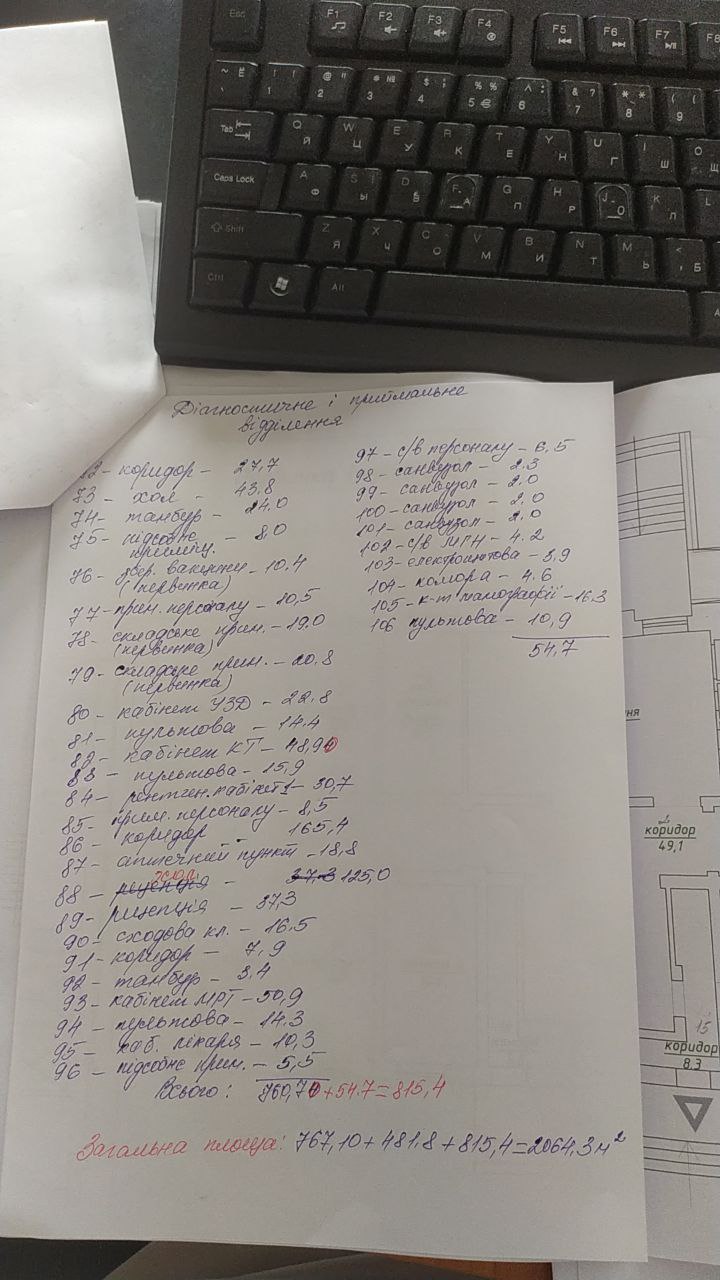 Esc F1 F2 F3 F4 F5 F6 F7 F8
~ Ё ! 1 @ " 2 # № 3 $ ; 4 % % 5 € ^ : 6 & ? 7 * * 8 ( ( 9
Tab Q Й W Ц E У R К T Е Y Н U Г I Ш O Щ
Caps Lock A Ф S Ы D В F А G П H Р J О K Л L
Shift Z Я X Ч C С V М B И N Т M Ь < , Б
Ctrl Alt
Діагностичне і приймальне
відділення
коридор - 27,7
73 - хол - 43,8
74 - танбур - 24,0
75 - підсобне - 8,0
приміщ.
76 - збер. вакцини - 10.4
(первинка)
77 - прим. персоналу - 10,5
78 - складське прим. - 19.0
(первинка)
79 - складське прим. - 20,8
(первинка)
80 - кабінет УЗД - 22,8
81 - пультова - 14.4
82 - кабінет КТ - 48,90
83 - пультова - 15,9
84 - рентген. кабінет 1 - 30,7
85 - прим. персоналу - 8,5
86 - коридор 165,4
87 - аптечний пункт - 18,8
хол
88 - рецепція - 37.3 125,0
89 - рицепція - 37,3
90 - сходова кл. - 16.5
91 - коридор - 7,9
92 - танбур - 3.4
93 - кабінет МРТ - 50,9
94 - пультова - 14.3
95 - каб. лікаря - 10,3
96 - підсобне прим. - 5,5
Всього: 760,70 + 54.7 = 815,4
97 - с/в персоналу - 6,5
98 - санвузол - 2.3
99 - санвузол - 2.0
100 - санвузол - 2,0
101 - санвузол - 2,0
102 - с/в МГН - 4.2
103 - електрощитова - 3,9
104 - комора - 4.6
105 - к-т томографії - 16.3
106 пультова - 10,9
54,7
Загальна площа: 767,10 + 481.8 + 815,4 = 2064,3 м²
ня
коридор
49,1
15
коридор
8.3